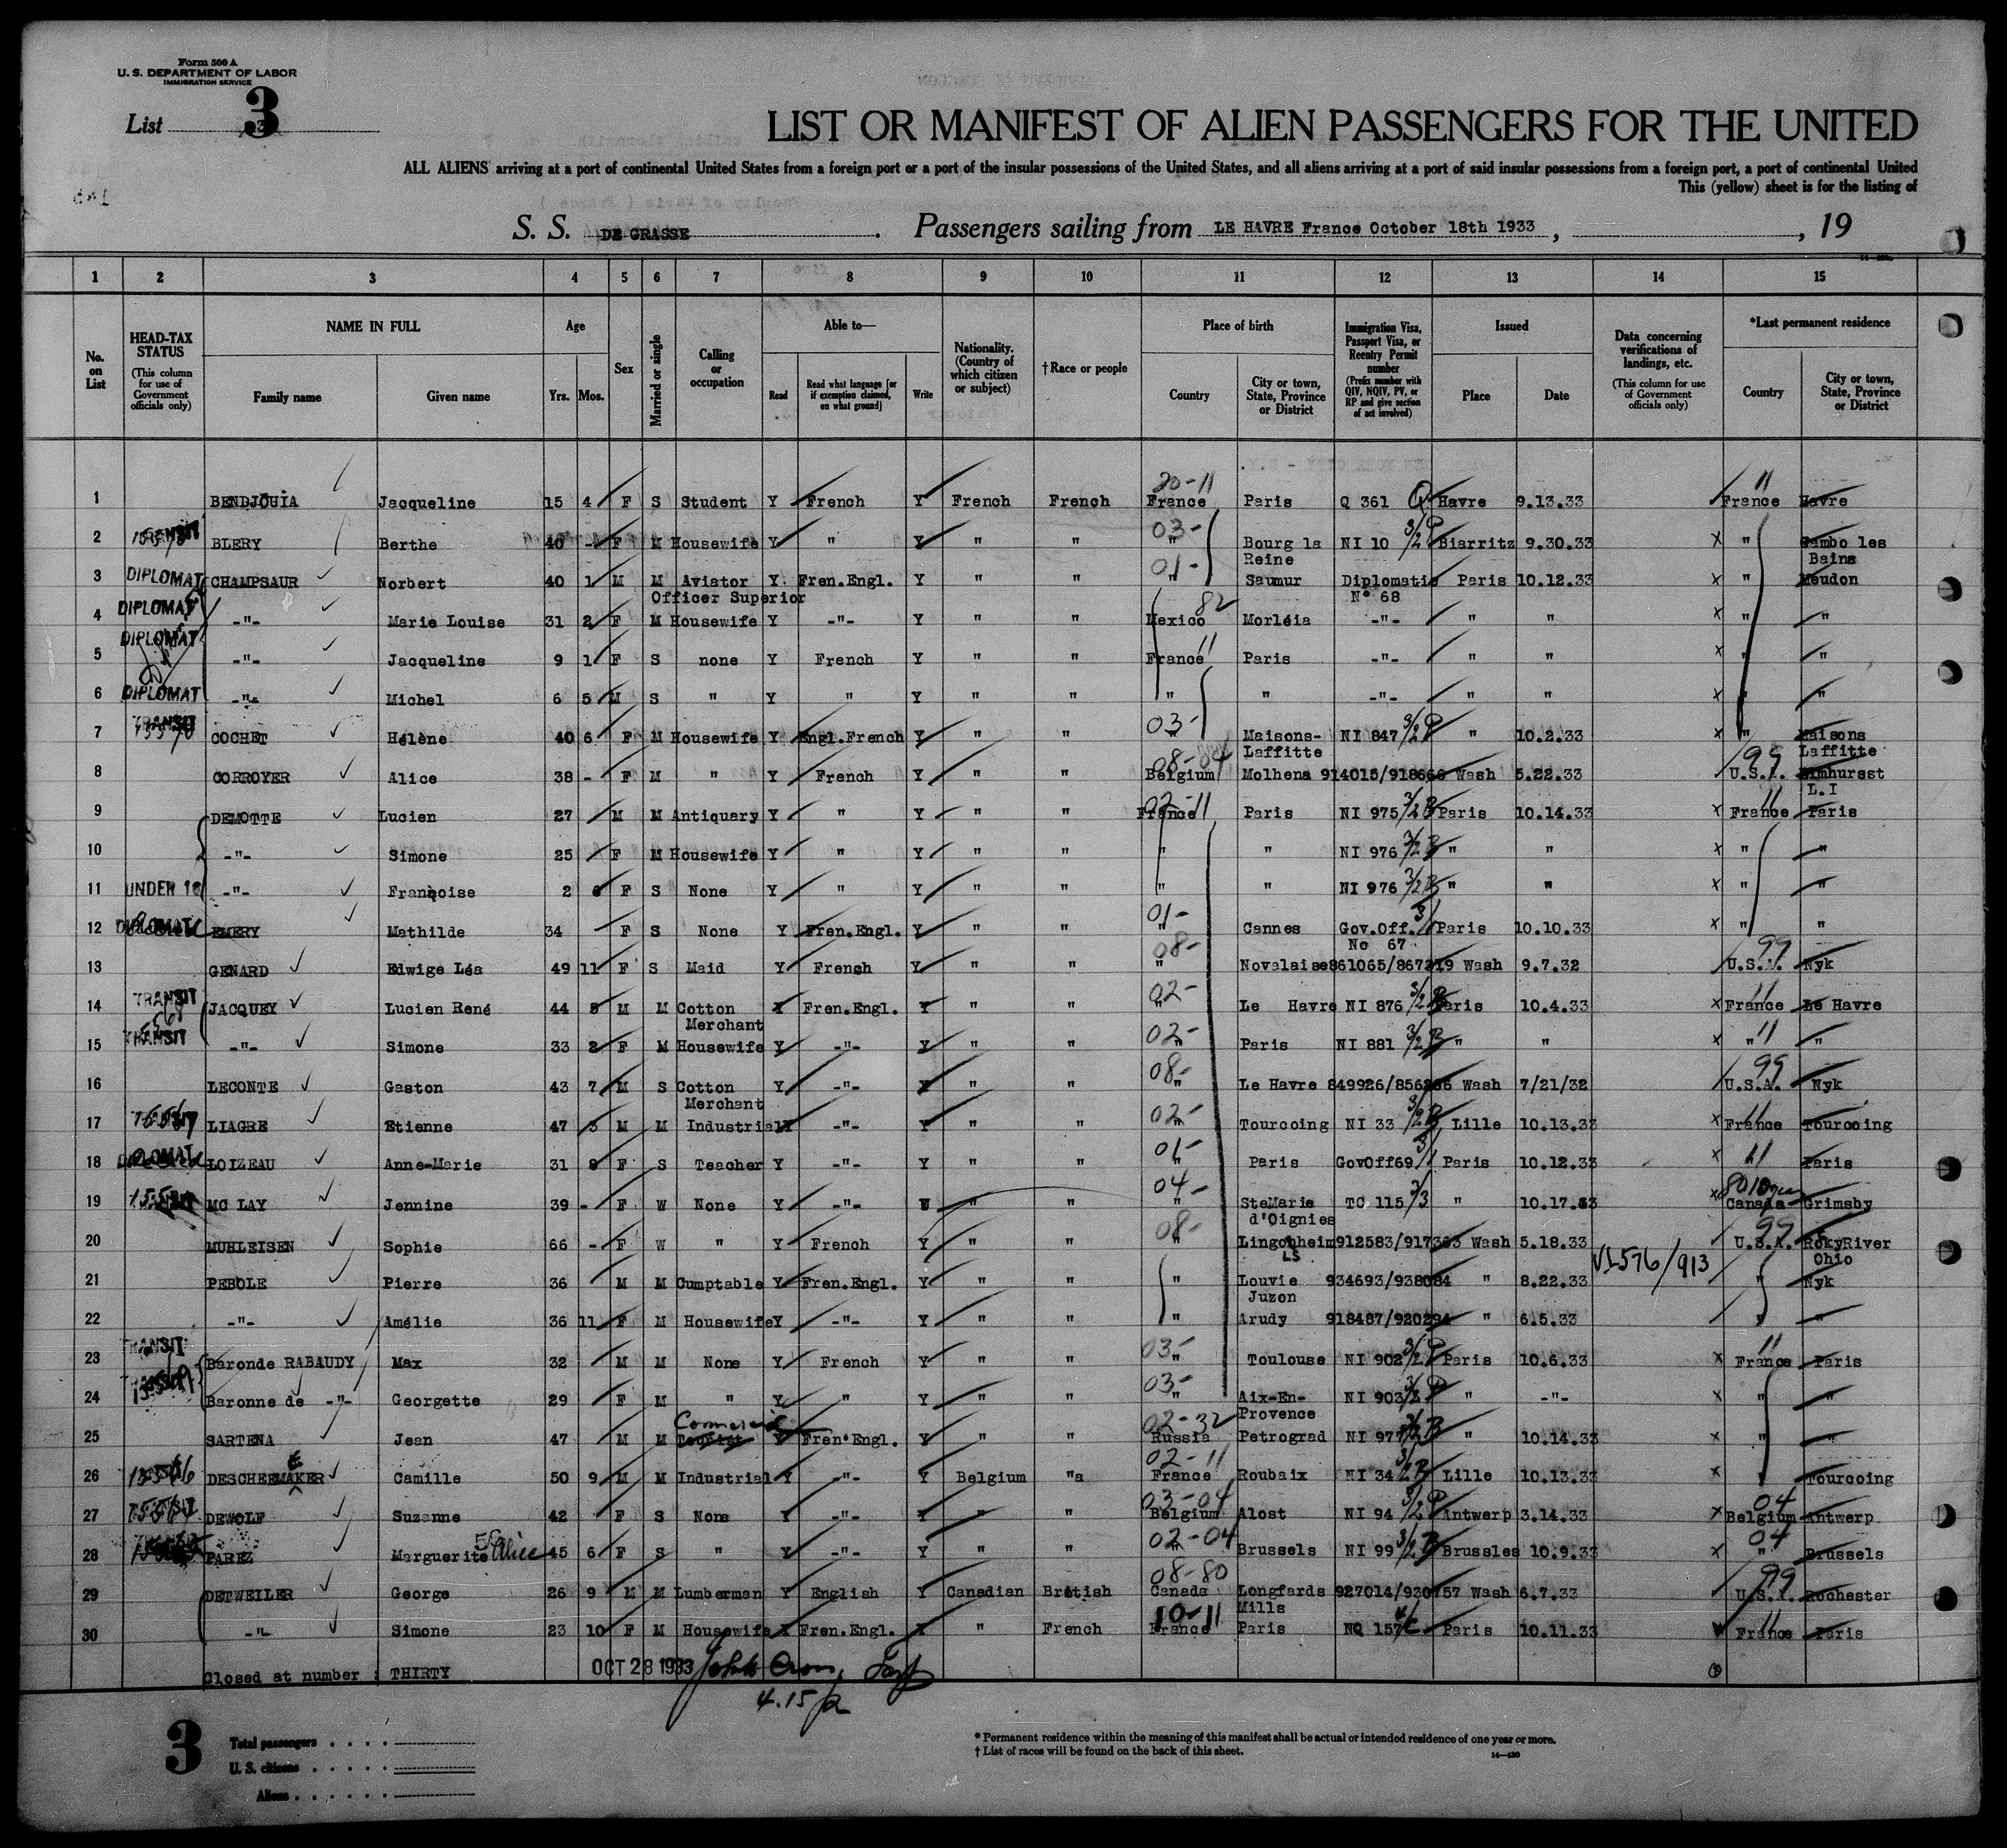 Form 500 A
U. S. DEPARTMENT OF LABOR
IMMIGRATION SERVICE
List 3
LIST OR MANIFEST OF ALIEN PASSENGERS FOR THE UNITED
ALL ALIENS arriving at a port of continental United States from a foreign port or a port of the insular possessions of the United States, and all aliens arriving at a port of said insular possessions from a foreign port, a port of continental United
This (yellow) sheet is for the listing of
S. S. DE GRASSE . Passengers sailing from LE HAVRE France October 18th 1933 , , 19
1 2 3 4 5 6 7 8 9 10 11 12 13 14 15
No. on List
HEAD-TAX STATUS (This column for use of Government officials only)
NAME IN FULL Family name Given name
Age Yrs. Mos.
Sex
Married or single
Calling or occupation
Able to— Read Read what language [or if exemption claimed, on what ground] Write
Nationality. (Country of which citizen or subject)
† Race or people
Place of birth Country City or town, State, Province or District
Immigration Visa, Passport Visa, or Reentry Permit number (Prefix number with QIV, NQIV, PV, or RP and give section of act involved)
Issued Place Date
Data concerning verifications of landings, etc. (This column for use of Government officials only)
*Last permanent residence Country City or town, State, Province or District
1 BENDJOUIA Jacqueline 15 4 F S Student Y French Y French French 20-11 France Paris Q 361 Q Havre 9.13.33 11 France Havre
2 TRANSIT BLERY Berthe 40 - F M Housewife Y " Y " " 03- " Bourg la Reine NI 10 3/2 P Biarritz 9.30.33 x " Cambo les Bains
3 DIPLOMAT CHAMPSAUR Norbert 40 1 M M Aviator Officer Superior Y Fren.Engl. Y " " 01- " Saumur Diplomatic N° 68 Paris 10.12.33 x " Meudon
4 DIPLOMAT -"- Marie Louise 31 2 F M Housewife Y -"- Y " " 82 Mexico Morléia -"- " " x " "
5 DIPLOMAT -"- Jacqueline 9 1 F S none Y French Y " " 11 France Paris -"- " " x " "
6 DIPLOMAT -"- Michel 6 5 M S " Y " Y " " " " -"- " " x " "
7 TRANSIT COCHET Hélène 40 6 F M Housewife Y Engl.French Y " " 03- " Maisons-Laffitte NI 847 3/2 P " 10.2.33 x " Maisons Laffitte
8 CORROYER Alice 38 - F M " Y French Y " " 08-04 Belgium Molhena 914015/918666 Wash 5.22.33 99 U.S.A. Elmhursst L.I
9 DEMOTTE Lucien 27 M M Antiquary Y " Y " " 02-11 France Paris NI 975 3/2 B Paris 10.14.33 x 11 France Paris
10 -"- Simone 25 F M Housewife Y " Y " " " " NI 976 3/2 B " " x " "
11 UNDER 16 -"- Françoise 2 6 F S None Y " Y " " " " NI 976 3/2 B " " x " "
12 DIPLOMAT EMERY Mathilde 34 F S None Y Fren.Engl. Y " " 01- " Cannes Gov.Off. No 67 3/1 Paris 10.10.33 x " "
13 GENARD Edwige Léa 49 11 F S Maid Y French Y " " 08- " Novalaise 861065/867219 Wash 9.7.32 99 U.S.A. Nyk
14 TRANSIT JACQUEY Lucien René 44 5 M M Cotton Merchant Y Fren.Engl. Y " " 02- " Le Havre NI 876 3/2 B Paris 10.4.33 x 11 France Le Havre
15 TRANSIT -"- Simone 33 2 F M Housewife Y -"- Y " " 02- " Paris NI 881 3/2 B " " x " 11 "
16 LECONTE Gaston 43 7 M S Cotton Merchant Y -"- Y " " 08- " Le Havre 849926/856266 Wash 7/21/32 99 U.S.A. Nyk
17 LIAGRE Etienne 47 3 M M Industrial Y -"- Y " " 02- " Tourcoing NI 33 3/2 B Lille 10.13.33 x 11 France Tourcoing
18 DIPLOMAT LOIZEAU Anne-Marie 31 8 F S Teacher Y -"- Y " " 01- " Paris GovOff69 3/1 Paris 10.12.33 x 11 Paris
19 TRANSIT MC LAY Jennine 39 - F W None Y -"- W " " 04- " SteMarie d'Oignies TC 115 3/3 " 10.17.33 x Canada Grimsby
20 MUHLEISEN Sophie 66 - F W " Y French Y " " 08- " Lingolsheim 912583/917363 Wash 5.18.33 99 U.S.A. RokyRiver Ohio
21 PEBOLE Pierre 36 M M Cumptable Y Fren.Engl. Y " " " Louvie Juzon 934693/938084 " 8.22.33 V1576/913 " Nyk
22 -"- Amélie 36 11 F M Housewife Y -"- Y " " " Arudy 918487/920294 " 6.5.33 " "
23 TRANSIT Baronde RABAUDY Max 32 M M None Y French Y " " 03- " Toulouse NI 902 3/2 P Paris 10.6.33 x 11 France Paris
24 Baronne de -"- Georgette 29 F M " Y " Y " " 03- " Aix-En-Provence NI 903 3/2 P " -"- x " "
25 SARTENA Jean 47 M M Tourist Y Fren.Engl. Y " " 02-32 Russia Petrograd NI 977 3/2 B " 10.14.33 x " "
26 DESCHEEMAEKER Camille 50 9 M M Industrial Y -"- Y Belgium "a 02-11 France Roubaix NI 34 3/2 B Lille 10.13.33 x " Tourcoing
27 DEWOLF Suzanne 42 F S None Y -"- Y " " 03-04 Belgium Alost NI 94 3/2 P Antwerp 3.14.33 x 04 Belgium Antwerp
28 PAREZ Marguerite Alice 45 6 F S " Y -"- Y " " 02-04 " Brussels NI 99 3/2 B Brussles 10.9.33 x 04 " Brussels
29 DETWEILER George 26 9 M M Lumberman Y English Y Canadian British 08-80 Canada Longfards Mills 927014/930757 Wash 6.7.33 99 U.S.A. Rochester
30 -"- Simone 23 10 F M Housewife Y Fren.Engl. Y " French 10-11 France Paris NQ 157 4/C Paris 10.11.33 11 France Paris
Closed at number : THIRTY OCT 28 1933
4.15 p
3
Total passengers
U. S. citizens
Aliens
* Permanent residence within the meaning of this manifest shall be actual or intended residence of one year or more.
† List of races will be found on the back of this sheet.
14—420